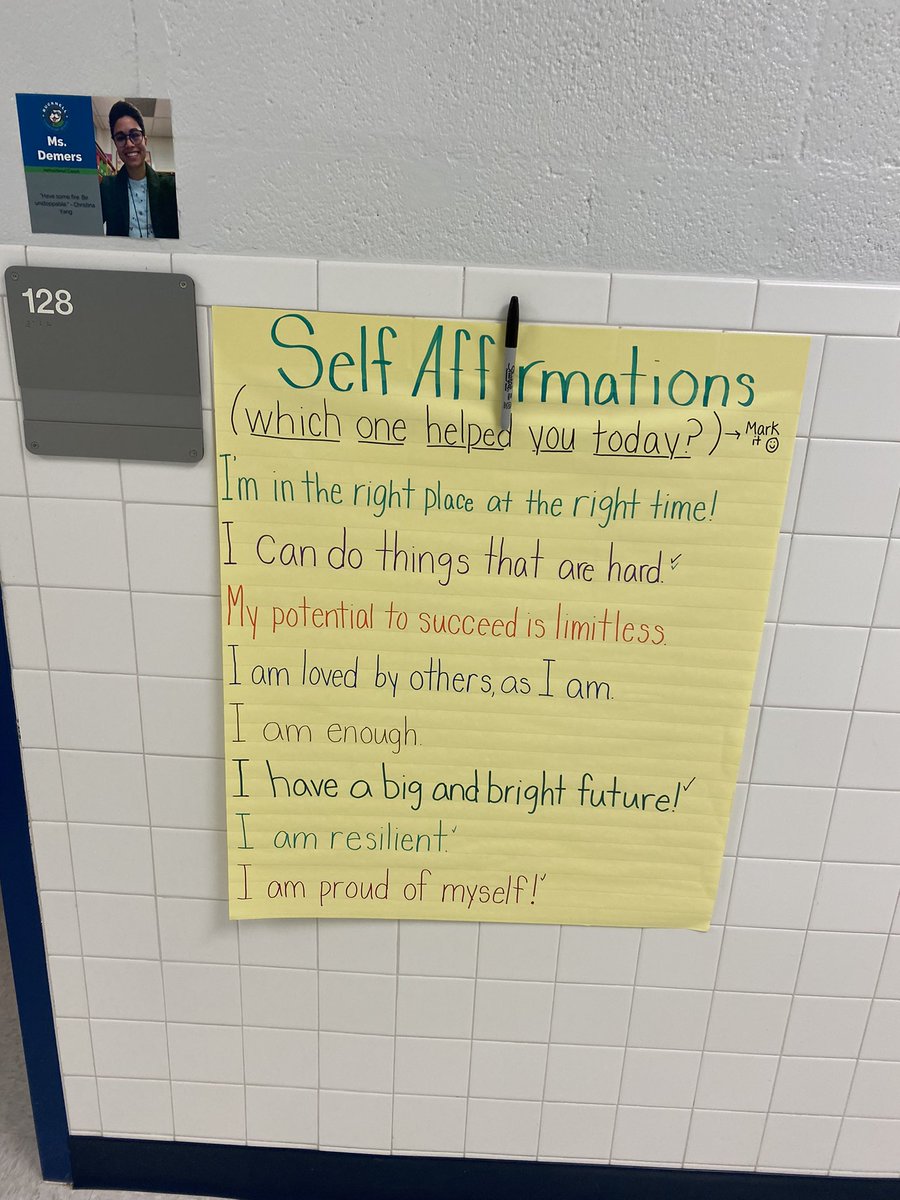 BUCKNELL
Ms.
Demers
Instructional Coach
"Have some fire. Be
unstoppable." - Christina
Yang
128
Self Affirmations
(which one helped you today?) → Mark
it
I'm in the right place at the right time!
I can do things that are hard.
My potential to succeed is limitless.
I am loved by others, as I am.
I am enough.
I have a big and bright future!
I am resilient.
I am proud of myself!
Sharpie